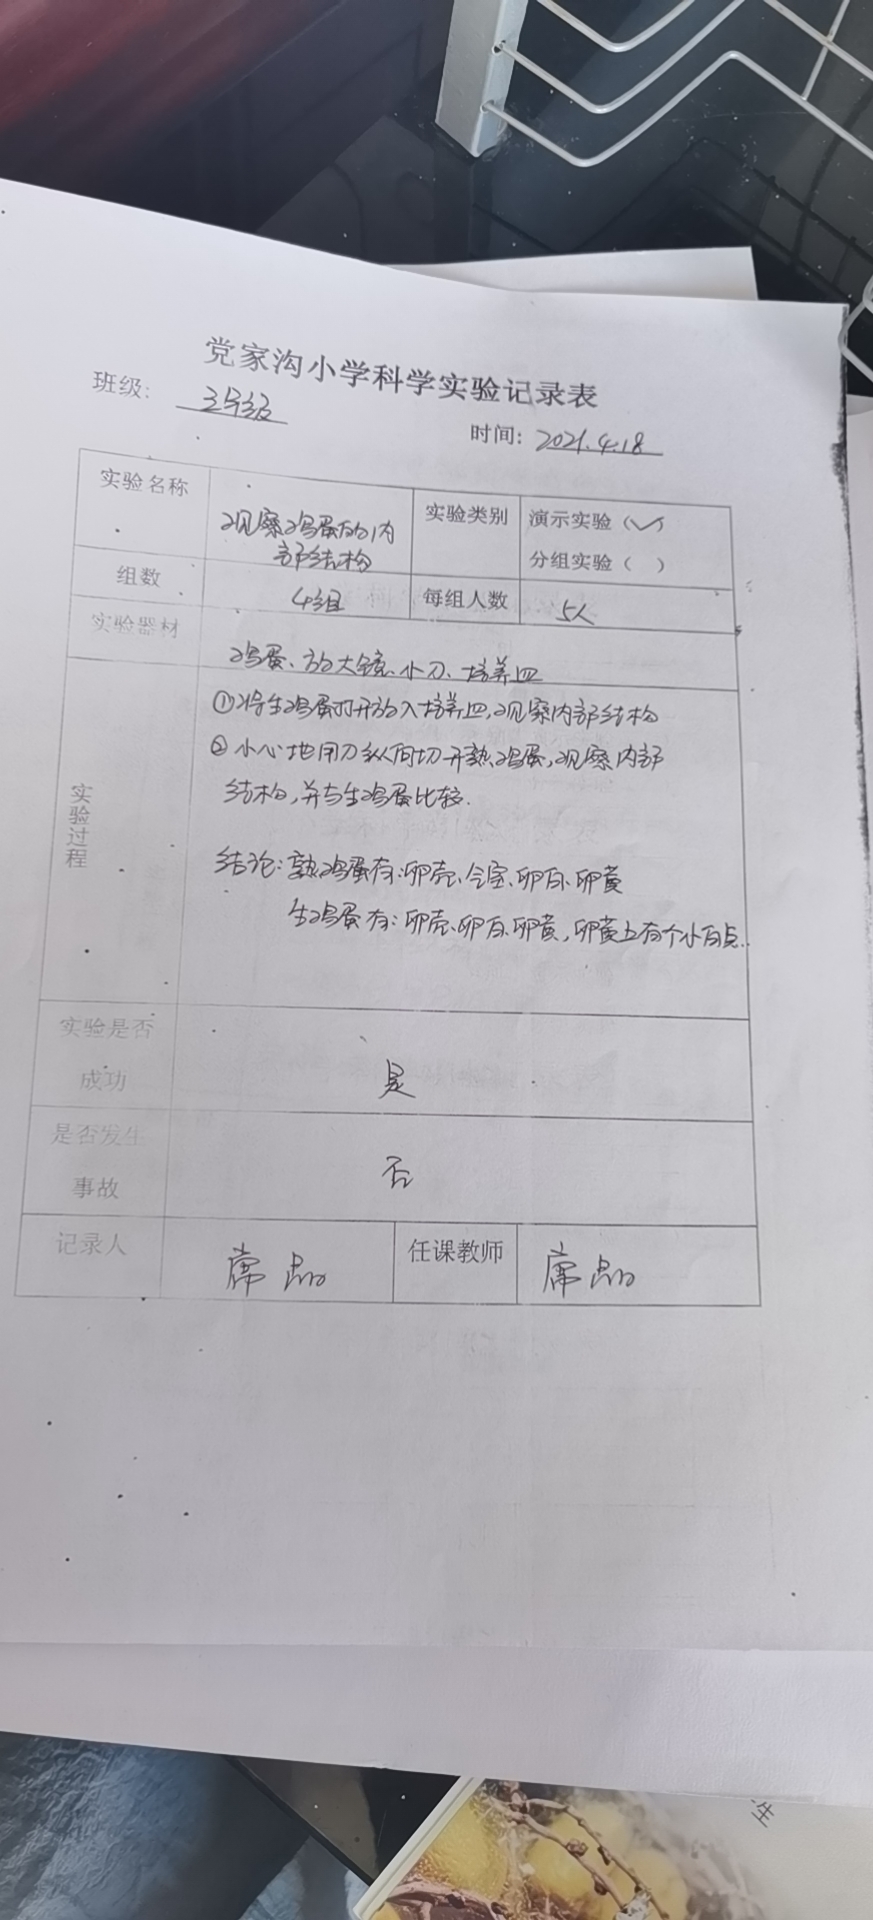 党家沟小学科学实验记录表
班级: 三年级
时间: 2021.4.18
实验名称
观察鸡蛋的内
部结构
实验类别
演示实验（✓）
分组实验（ ）
组数
4组
每组人数
5人
实验器材
鸡蛋、放大镜、小刀、培养皿
实验过程
①将生鸡蛋打开放入培养皿,观察内部结构
②小心地用刀纵向切开熟鸡蛋,观察内部
结构,并与生鸡蛋比较.
结论:熟鸡蛋有:卵壳、气室、卵白、卵黄
生鸡蛋有:卵壳、卵白、卵黄,卵黄上有个小白点.
实验是否
成功
是
是否发生
事故
否
记录人
席晶
任课教师
席晶
生